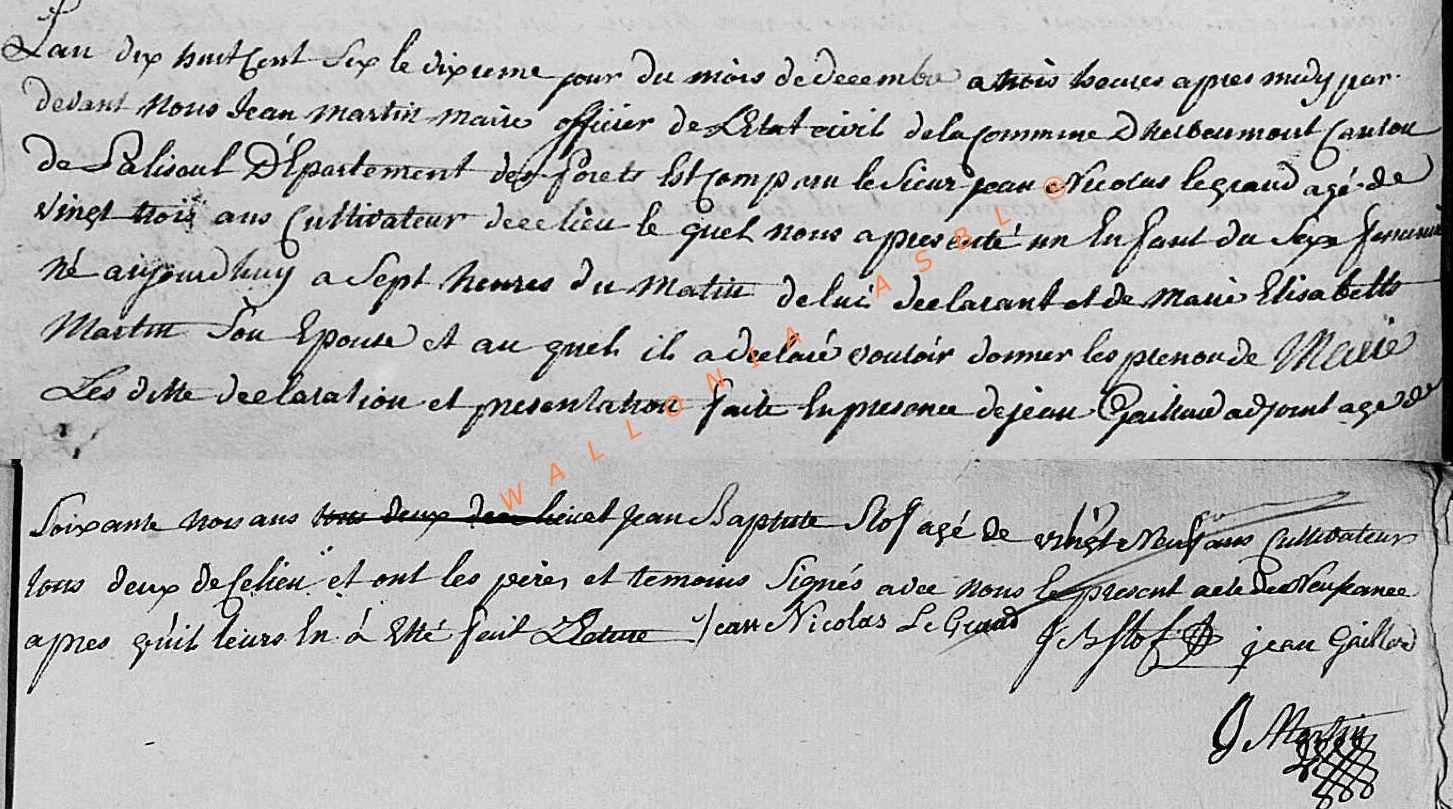 Lan dix huit Cent Six le dixieme jour du mois de decembre a trois heures apres midy par
devant nous Jean Martin maire officier de L'Etat civil de la Commune D'herbeumont Canton
de Paliseul Département des forets Est Comparu le Sieur jean Nicolas legrand agé de
vingt trois ans Cultivateur de ce lieu le quel nous a presenté un Enfant du Sexe feminin
né aujourdhuy a Sept heures du Matin de lui declarant et de Marie Elisabette
Martin Son Epouse et au quel il a declaré vouloir donner les prenon de Marie
Les ditte declaration et presentation faite En presence de jean Gaillard adjoint agé de
Soixante trois ans tous deux de ce lieu et jean Baptiste Slof agé de vingt Neuf ans Cultivateur
tous deux de Celieu et ont les peres et temoins Signés avec nous le present acte de Neusance
apres qu'il leurs En à Eté fait Lecture Jean Nicolas Le Grand J B Slof jean Gaillard
J Martin
© WALLONIA ASBL